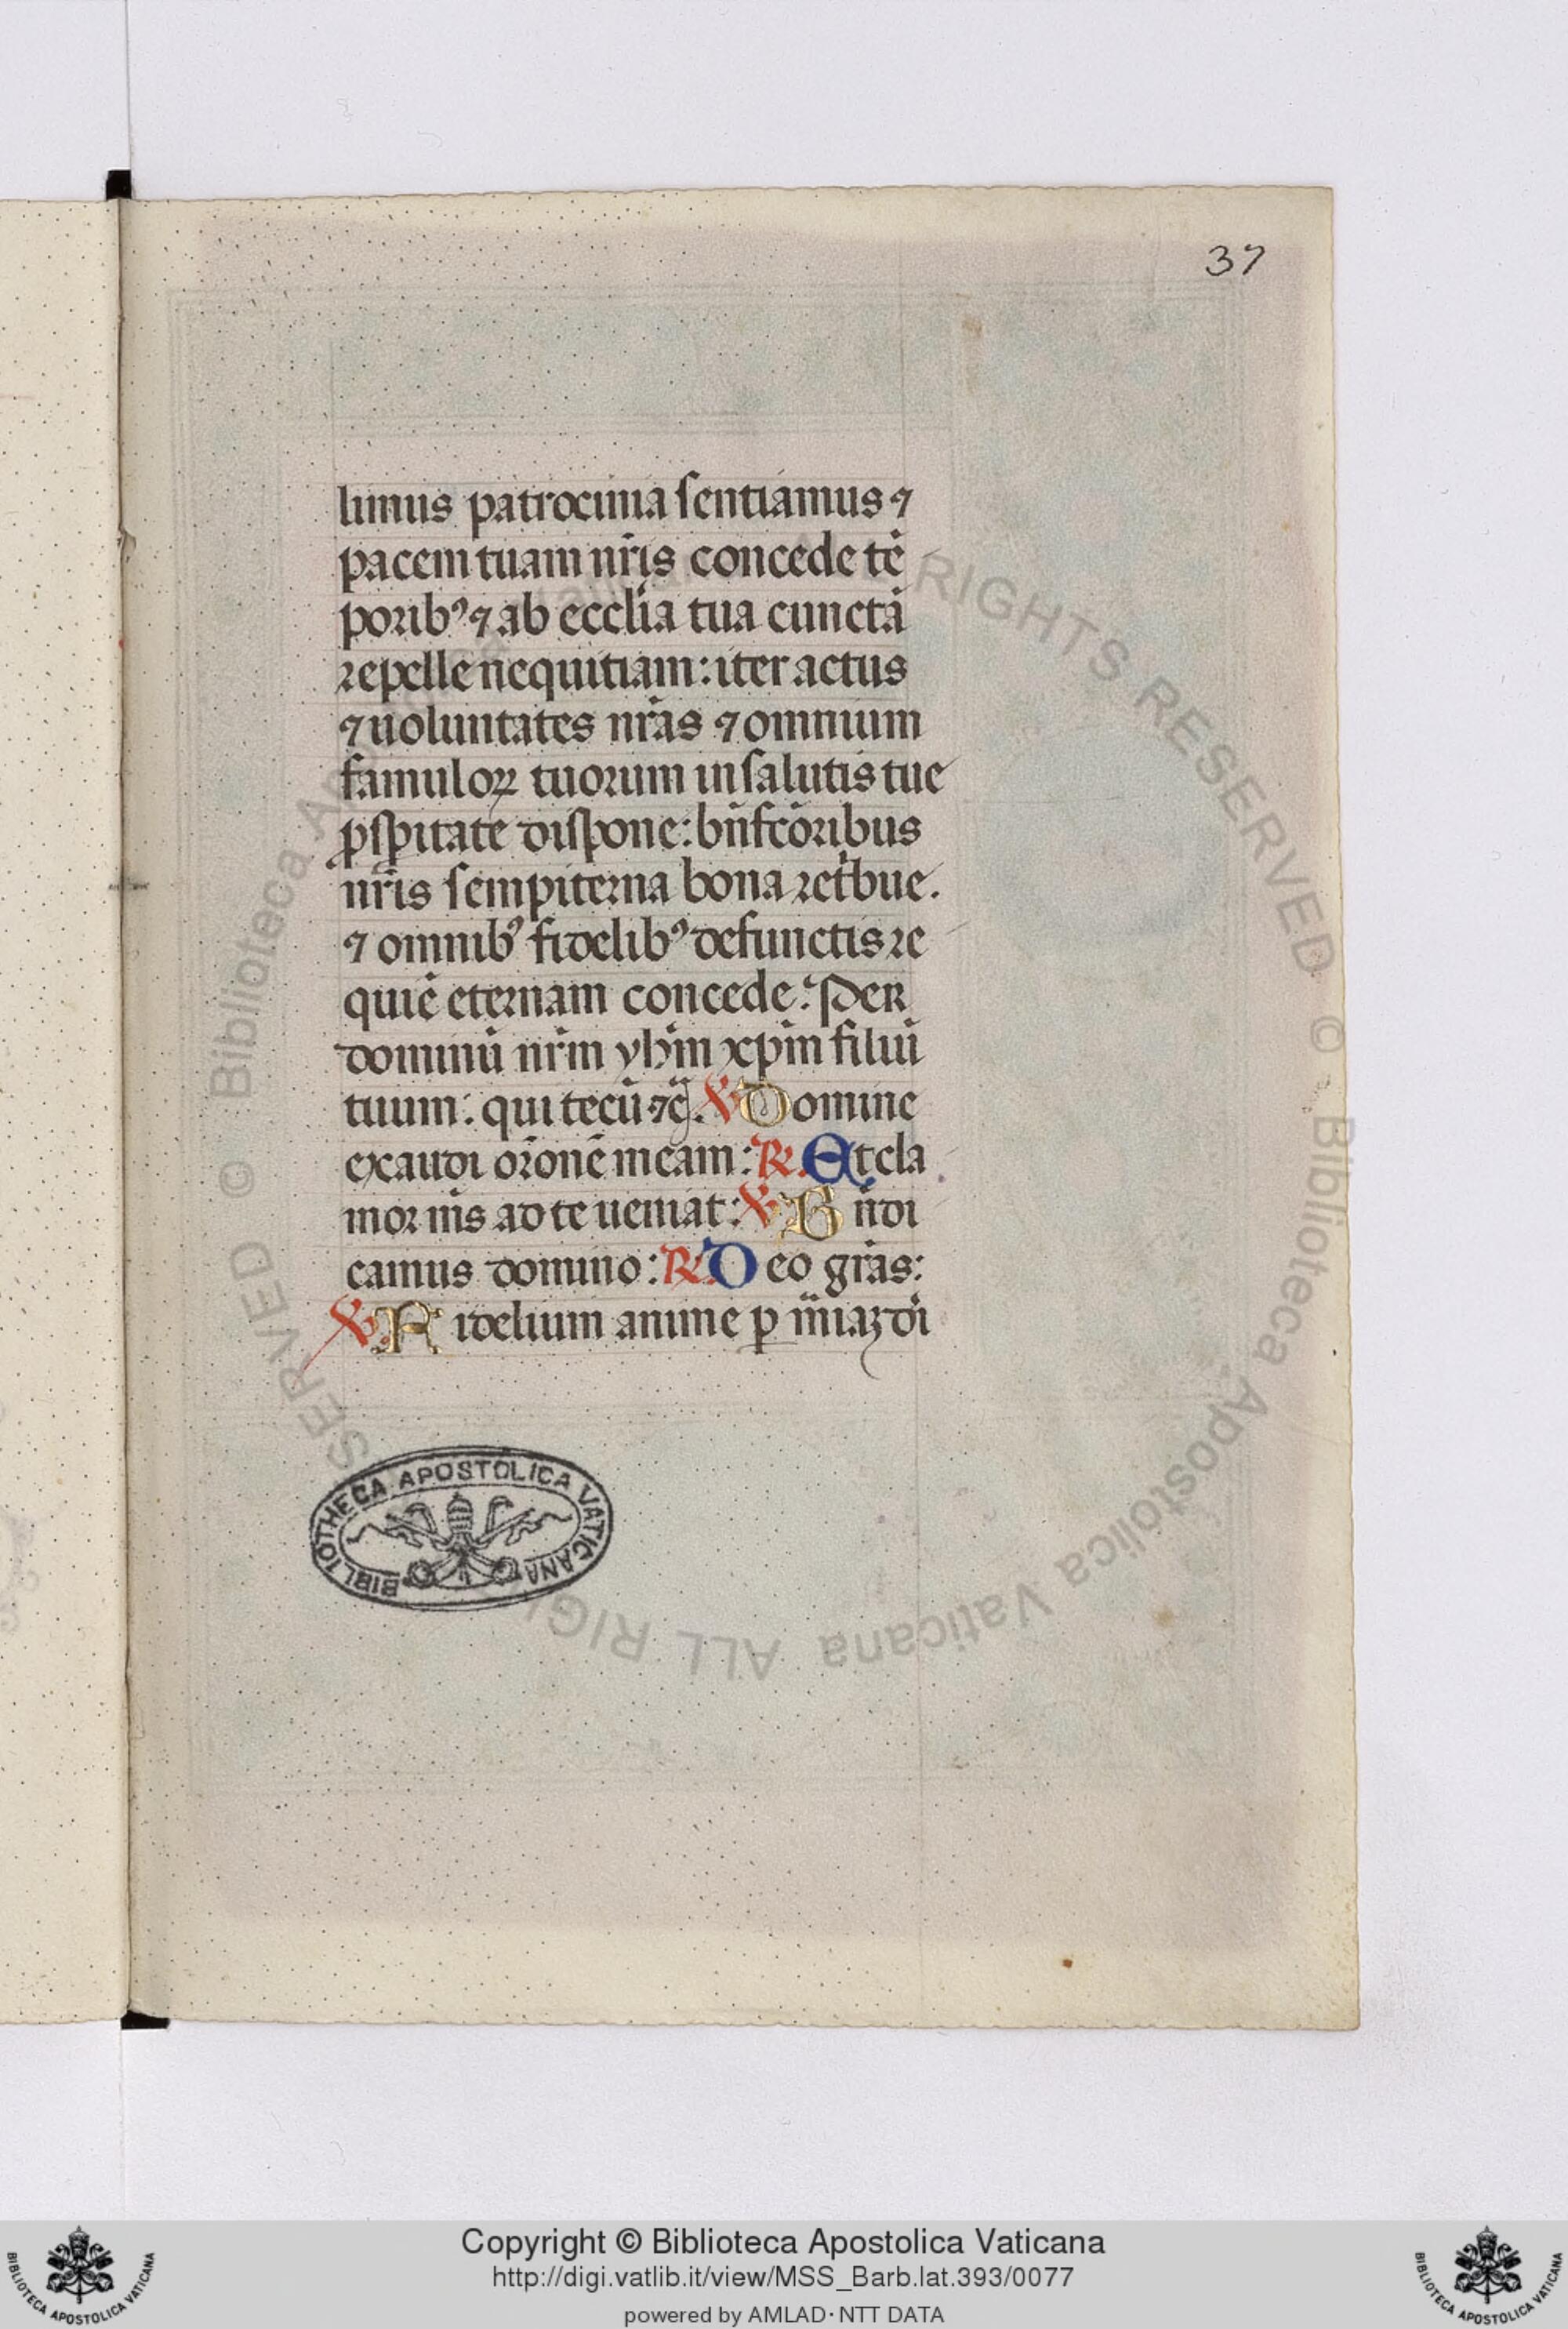 37
limus patrocinia sentiamus ⁊
pacem tuam nr̄is concede tē
poribꝰ ⁊ ab eccl̄ia tua cunctā
repelle nequitiam: iter actus
⁊ uoluntates nr̄as ⁊ omnium
famuloꝝ tuorum in salutis tue
ꝓsꝑitate dispone: bn̄fcōribus
nr̄is sempiterna bona retͥbue.
⁊ omnibꝰ fidelibꝰ defunctis re
quiē eternam concede: Per
dominū nr̄m yhm̄ xp̄m filiū
tuum: qui tecū ⁊cͣ. ℣ Domine
exaudi or̄onē meam: ℟. Et cla
mor m̄s ad te ueniat: ℣ Bn̄di
camus domino: ℟. Deo gr̄as:
℣. Fidelium anime ꝑ m̄iaʒ dī
BIBLIOTHECA APOSTOLICA VATICANA
© Biblioteca Apostolica Vaticana ALL RIGHTS RESERVED
Copyright © Biblioteca Apostolica Vaticana
http://digi.vatlib.it/view/MSS_Barb.lat.393/0077
powered by AMLAD·NTT DATA
BIBLIOTECA APOSTOLICA VATICANA
BIBLIOTECA APOSTOLICA VATICANA